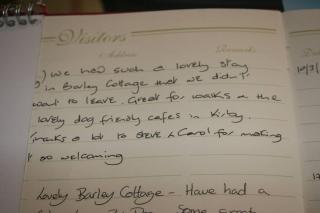 Visitors
Address Remarks
) We had such a lovely stay
in Barley Cottage that we didn't
want to leave. Great for walks & the
lovely dog friendly cafes in Kirkby.
Thanks a lot to Steve & Carol for making
it so welcoming
Lovely Barley Cottage - Have had a